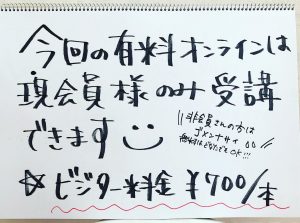 今回の有料オンラインは
現会員様のみ受講
できます
非会員さんの方は
ゴメンナサイ
無料はどなたでもOK!!!
☆ビジター料金 ¥700/本